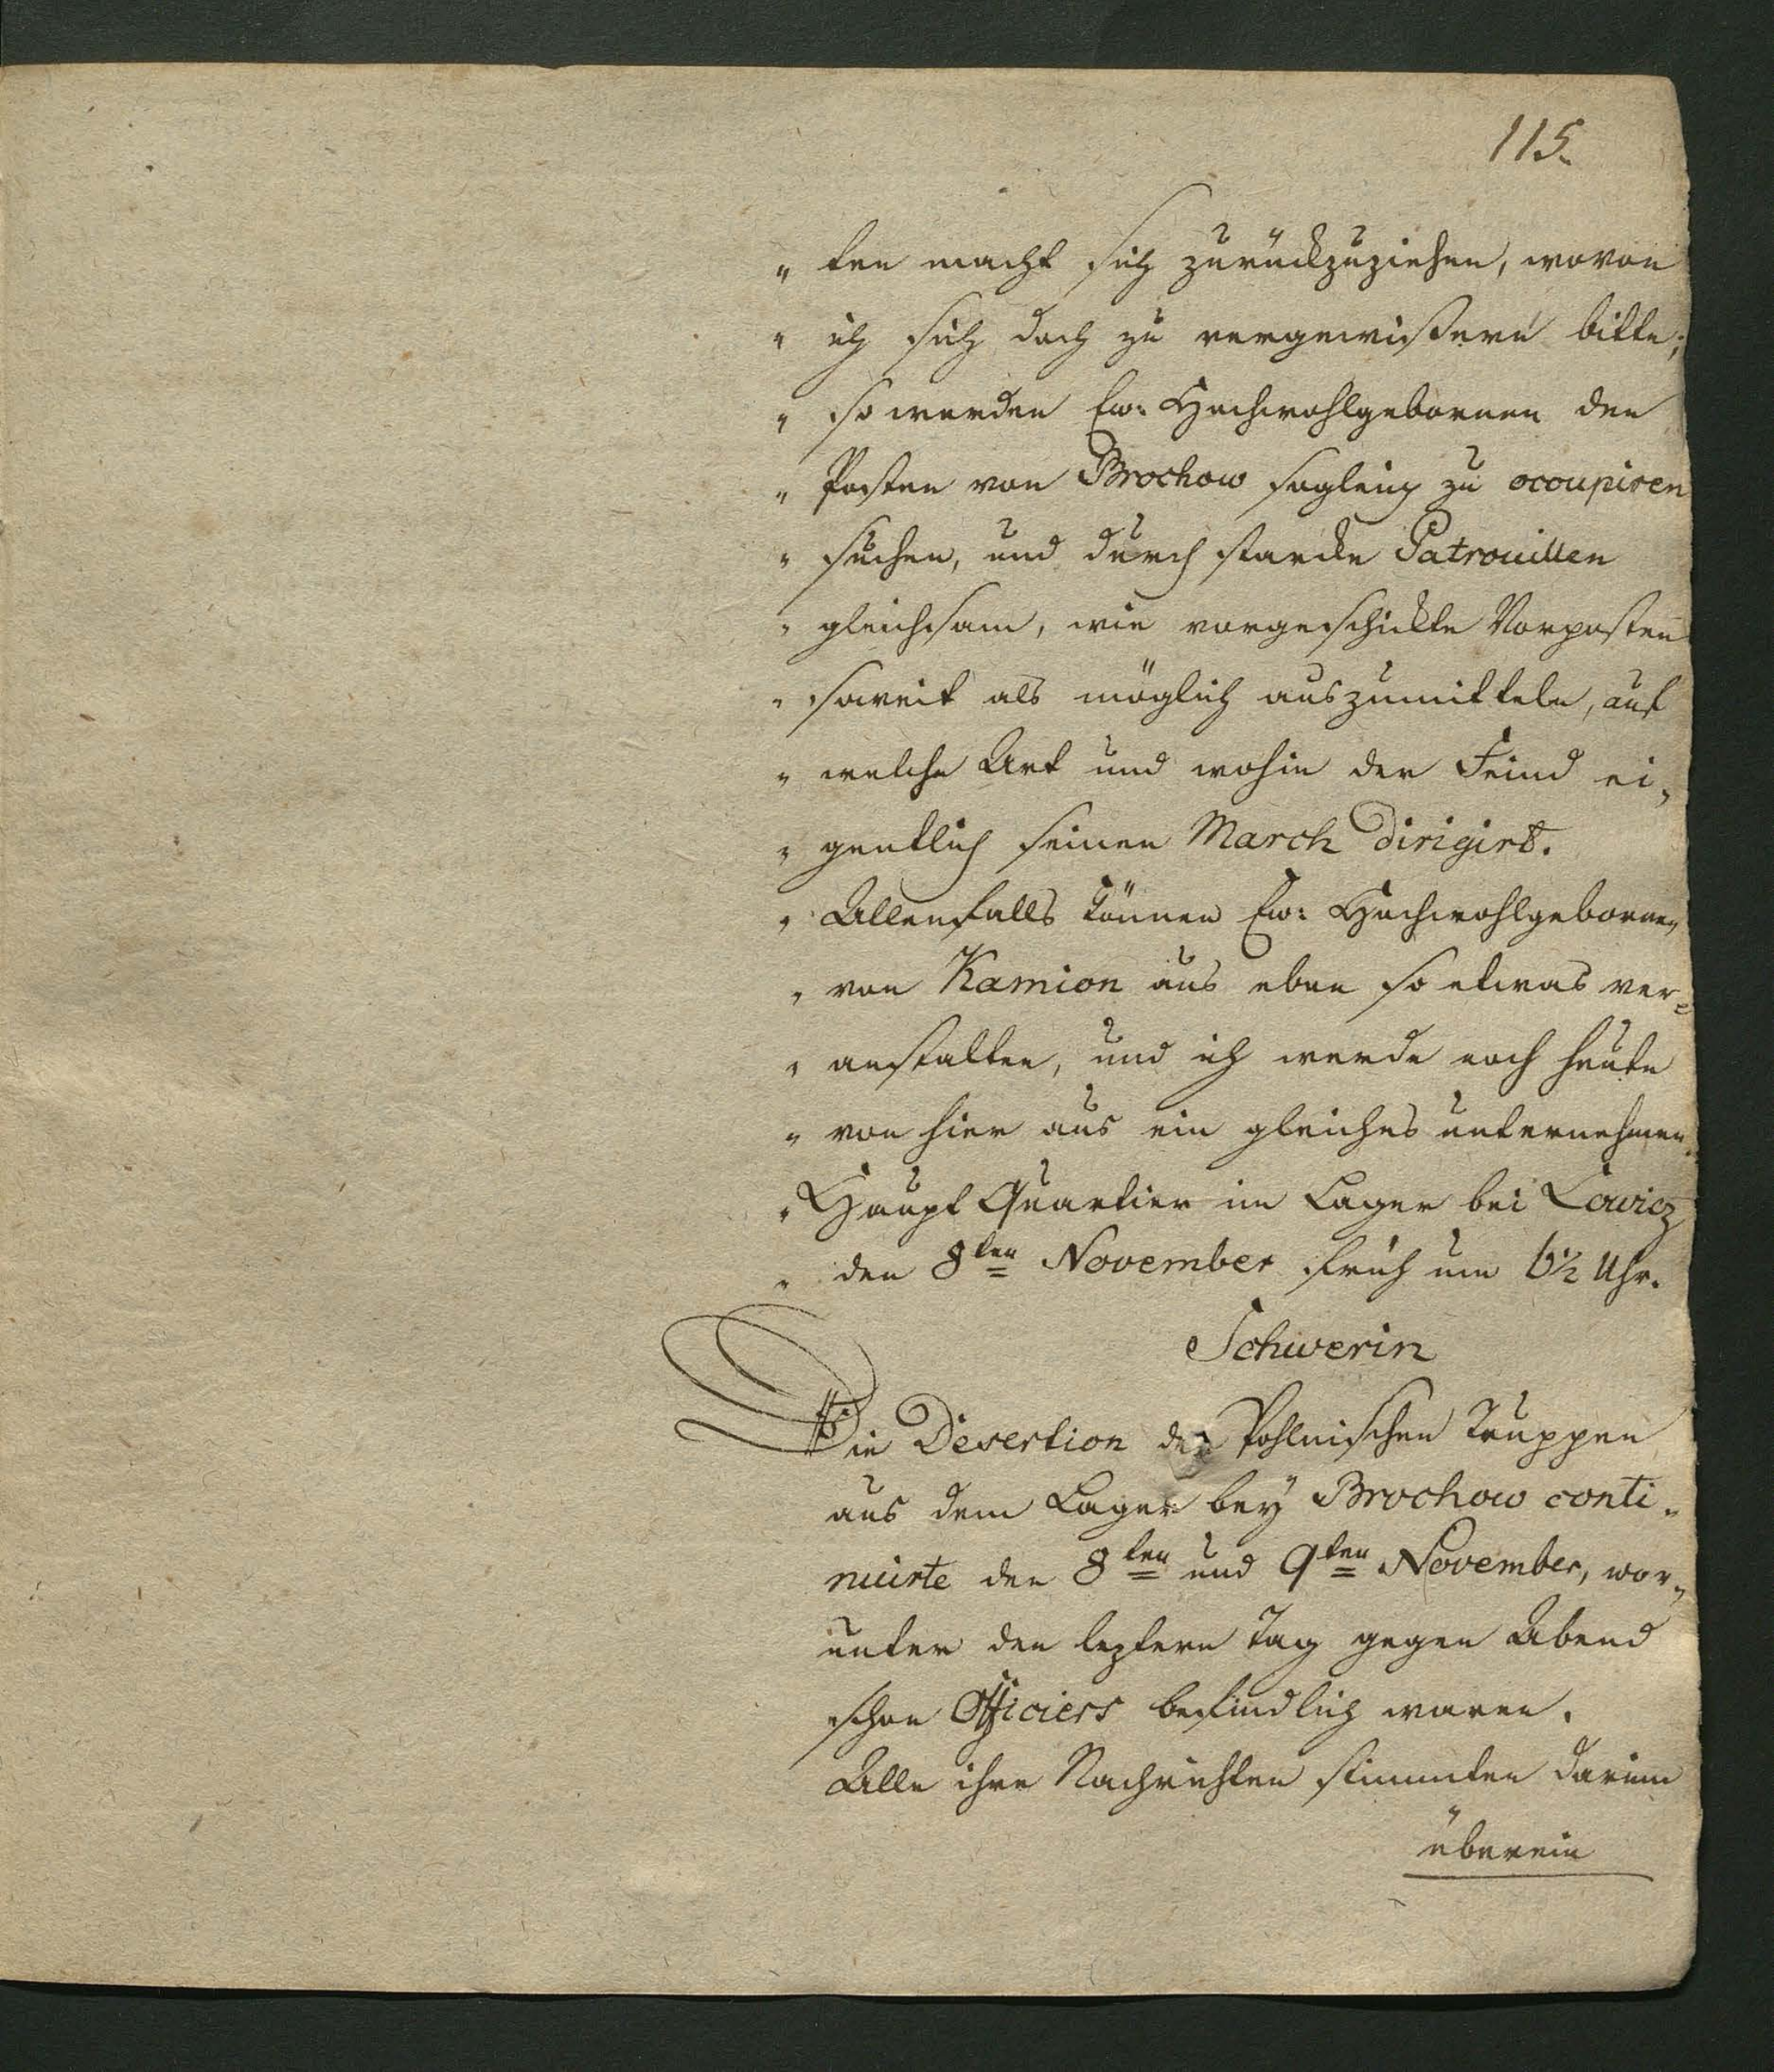 115.
" ten macht sich zurückzuziehen, wovon
" ich sich doch zu vergewißern bitte;
" so werden Ew: Hochwohlgebornen den
" Posten von Brochow sogleich zu occupiren
" suchen, und durch starcke Patrouillen
" gleichsam, wie vorgeschickte Vorposten
" soweit als möglich auszumitteln, auf
" welche Art und wohin der Feind ei„
" gentlich seinen March dirigirt.
" Allenfalls können Ew: Hochwohlgebornen
" von Kamion aus eben so etwas ver=
" anstalten, und ich werde noch heute
" von hier aus ein gleiches unternehmen.
" Haupt Quartier im Lager bei Lowicz
" den 8ten November früh um 6½ Uhr.
Schwerin
Die Desertion der Pohlnischen Truppen
aus dem Lager bey Brochow conti„
nuirte den 8ten und 9ten November, wor„
unter den leztern Tag gegen Abend
schon Officiers befindlich waren.
Alle ihre Nachrichten stimmten darinn
überein